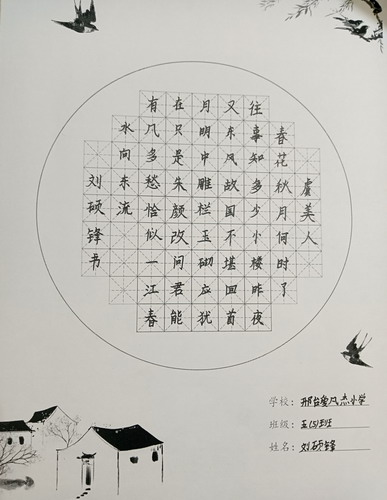 虞美人
春花秋月何时了
往事知多少小楼昨夜
又东风故国不堪回首
月明中雕栏玉砌应犹
在只是朱颜改问君能
有几多愁恰似一江春
水向东流
刘硕锋书
学校：邢台小学
班级：五班
姓名：刘硕锋